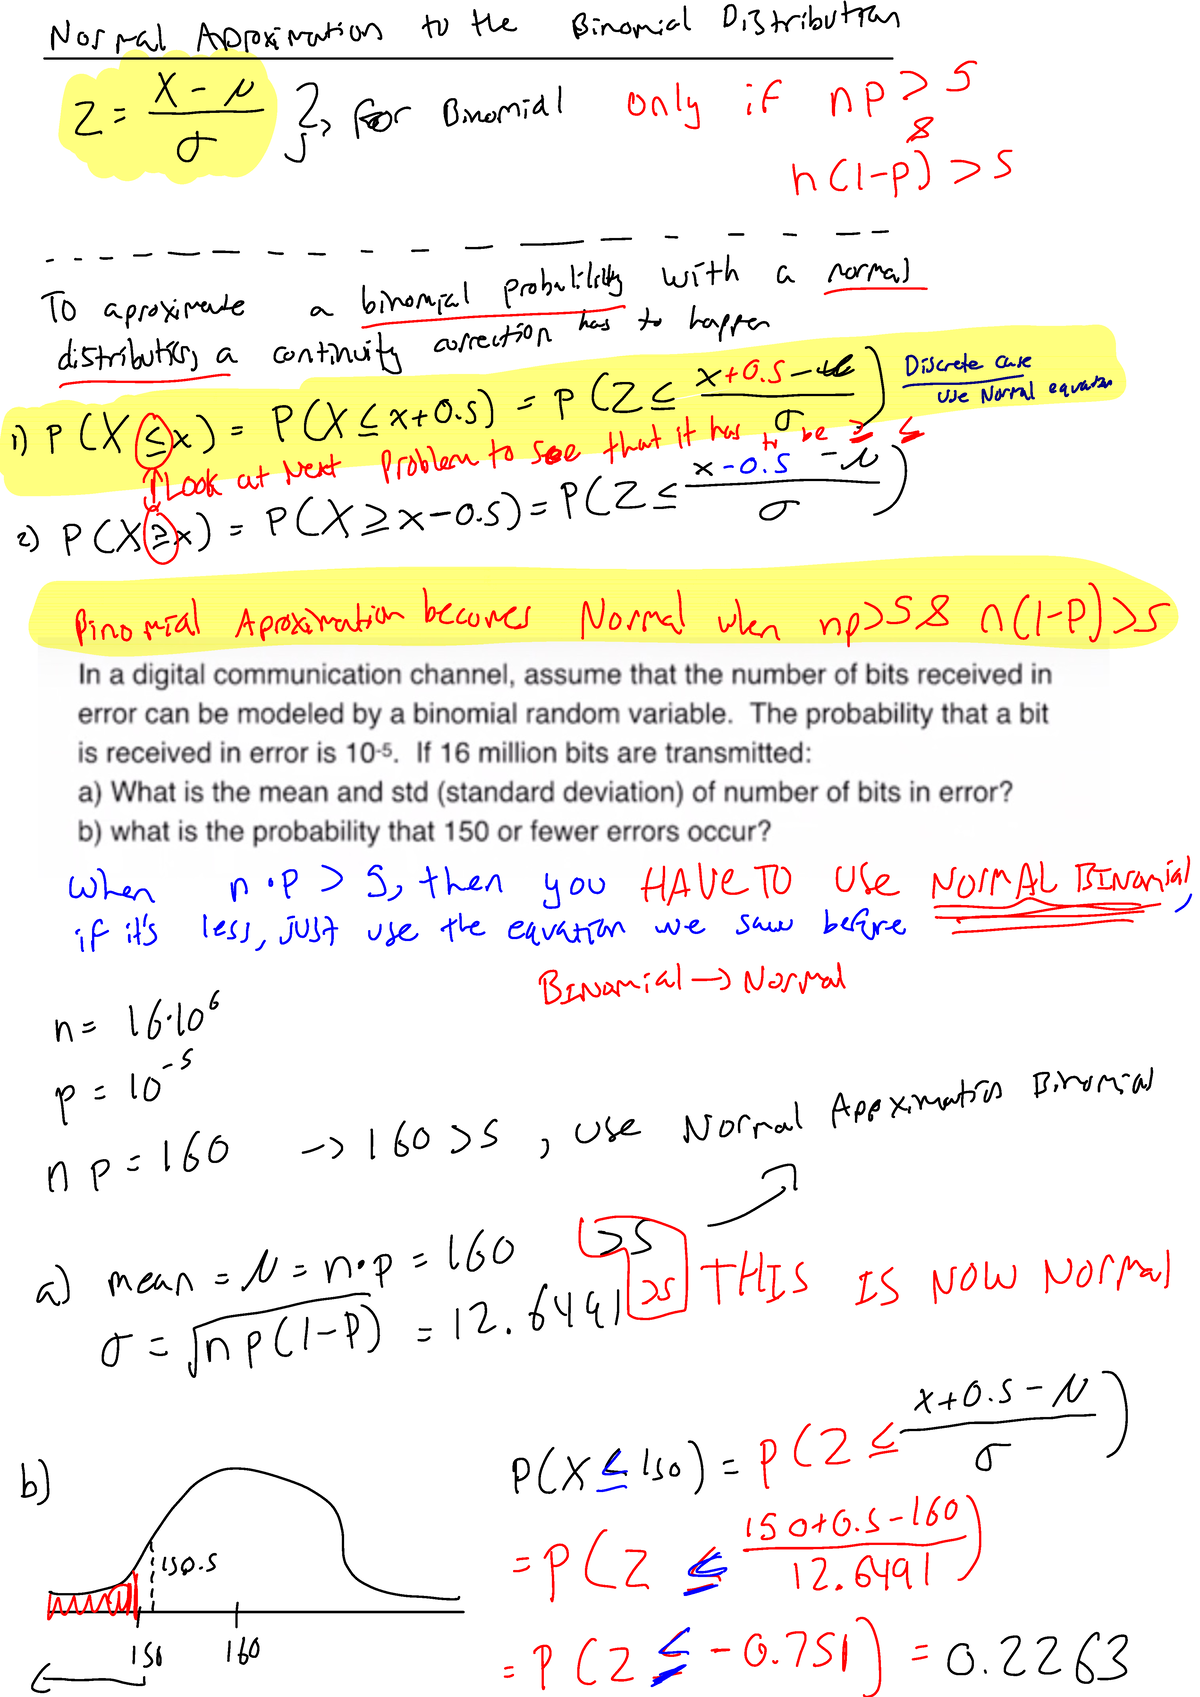 Normal Aproximation to the Binomial Distribution
Z = (X - μ) / σ } For Binomial only if np > 5
&
n(1-p) > 5
To aproximate a binomial probability with a normal
distribution, a continuity correction has to happen
1) P(X ≤ x) = P(X ≤ x+0.5) = P(Z ≤ (x+0.5-μ) / σ) Discrete case
Use Normal equation
Look at Next Problem to see that it has to be ≥ ≤
2) P(X ≥ x) = P(X ≥ x-0.5) = P(Z ≤ (x-0.5-μ) / σ)
Binomial Aproximation becomes Normal when np>5 & n(1-P)>5
In a digital communication channel, assume that the number of bits received in
error can be modeled by a binomial random variable. The probability that a bit
is received in error is 10-5. If 16 million bits are transmitted:
a) What is the mean and std (standard deviation) of number of bits in error?
b) what is the probability that 150 or fewer errors occur?
When n·p > 5, then you HAVE TO Use NORMAL BINOMial,
if it's less, just use the equation we saw before
BINOMial → Normal
n = 16·10⁶
p = 10⁻⁵
np = 160 → 160 > 5, Use Normal Appximation Binomial
a) mean = μ = n·p = 160 >5
σ = √np(1-P) = 12.6491 >5 THIS IS NOW NORMal
b)
P(X ≤ 150) = P(Z ≤ (x+0.5-μ) / σ)
150.5
= P(Z ≤ (150+0.5-160) / 12.6491)
150 160
= P(Z ≤ -0.751) = 0.2263